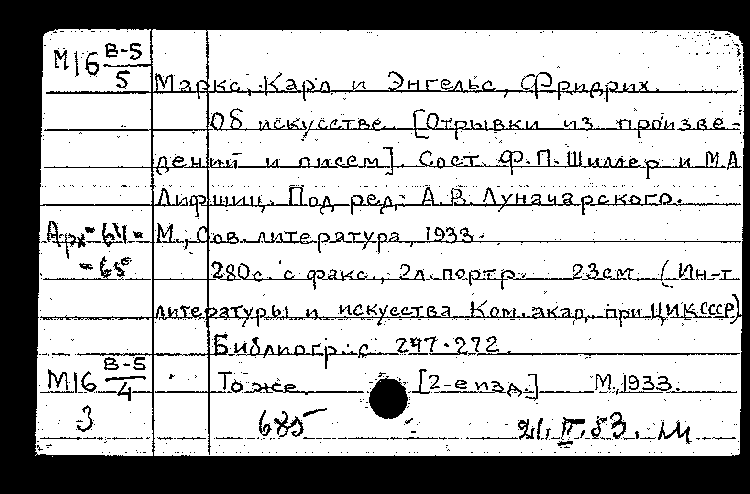 М16 В-5/5
Маркс, Карл и Энгельс, Фридрих.
Об искусстве. [Отрывки из произве-
дений и писем]. Сост. Ф.П.Шиллер и М.А
Лифшиц. Под ред. А.В.Луначарского.
Арх-64- М., Сов. литература, 1933.
-65 280с. с факс., 2л. портр. 23см (Ин-т
литературы и искусства Ком. акад. при ЦИК СССР)
Библиогр.: с. 247-272.
М16 В-5/4 То же. [2-е изд.] М.,1933.
3 685 21.IV.83.